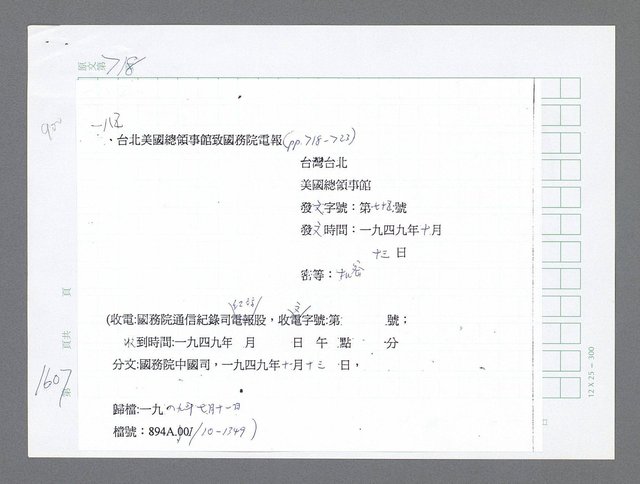 原文第718
一八五
、台北美國總領事館致國務院電報(pp.718-723)
台灣台北
美國總領事館
發文字號：第七十五號
發文時間：一九四九年十月
十三日
密等：機密
(收電:國務院通信紀錄司電報股，收電字號:第 號；
收到時間:一九四九年 月 日 午 點 分
分文:國務院中國司，一九四九年十月十三日，
歸檔:一九四九年七月十一日
檔號：894A.00/10-1349)
頁
頁共
第1607
12 X 25 - 300